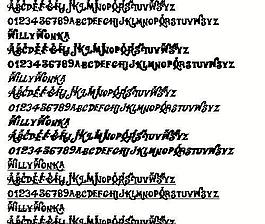 ABCDEFGHIJKLMNOPQRSTUVWXYZ
0123456789ABCDEFGHIJKLMNOPQRSTUVWXYZ
WILLY WONKA
ABCDEFGHIJKLMNOPQRSTUVWXYZ
0123456789ABCDEFGHIJKLMNOPQRSTUVWXYZ
WILLY WONKA
ABCDEFGHIJKLMNOPQRSTUVWXYZ
0123456789ABCDEFGHIJKLMNOPQRSTUVWXYZ
WILLY WONKA
ABCDEFGHIJKLMNOPQRSTUVWXYZ
0123456789ABCDEFGHIJKLMNOPQRSTUVWXYZ
WILLY WONKA
ABCDEFGHIJKLMNOPQRSTUVWXYZ
0123456789ABCDEFGHIJKLMNOPQRSTUVWXYZ
WILLY WONKA
ABCDEFGHIJKLMNOPQRSTUVWXYZ